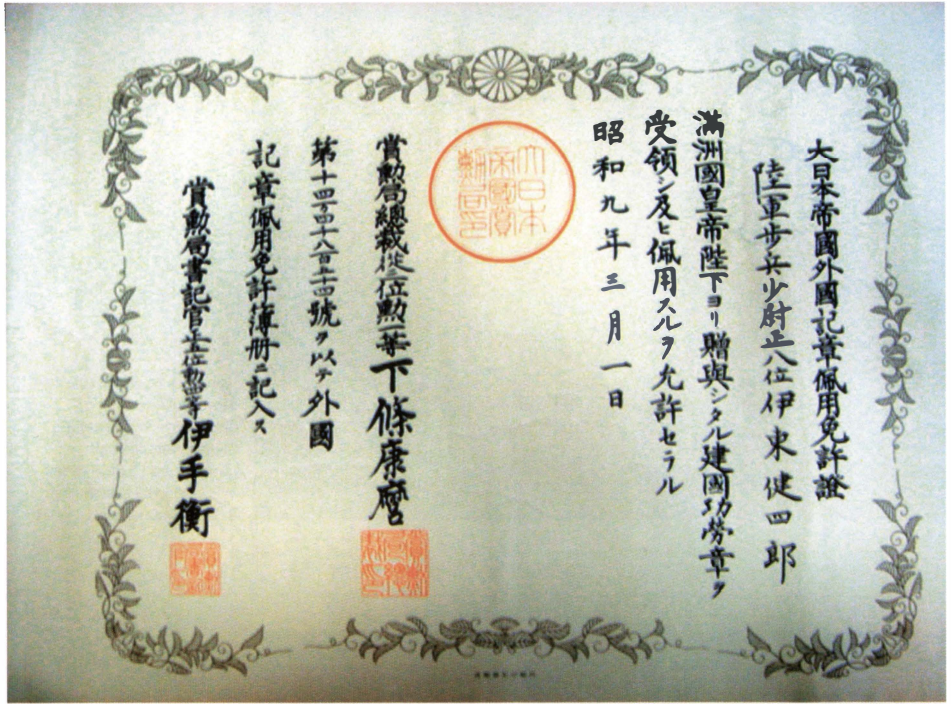 大日本帝國外國記章佩用免許證
陸軍歩兵少尉正八位伊東健四郎
滿洲國皇帝陛下ヨリ贈與シタル建國功勞章ヲ
受領シ及ヒ佩用スルヲ允許セラル
昭和九年三月一日
大日本
帝國賞
勲局印
賞勲局總裁從三位勲一等下條康麿
第十四万四千八百五十四號ヲ以テ外國
記章佩用免許簿册ニ記入ス
賞勲局書記官正五位勲四等伊手衡